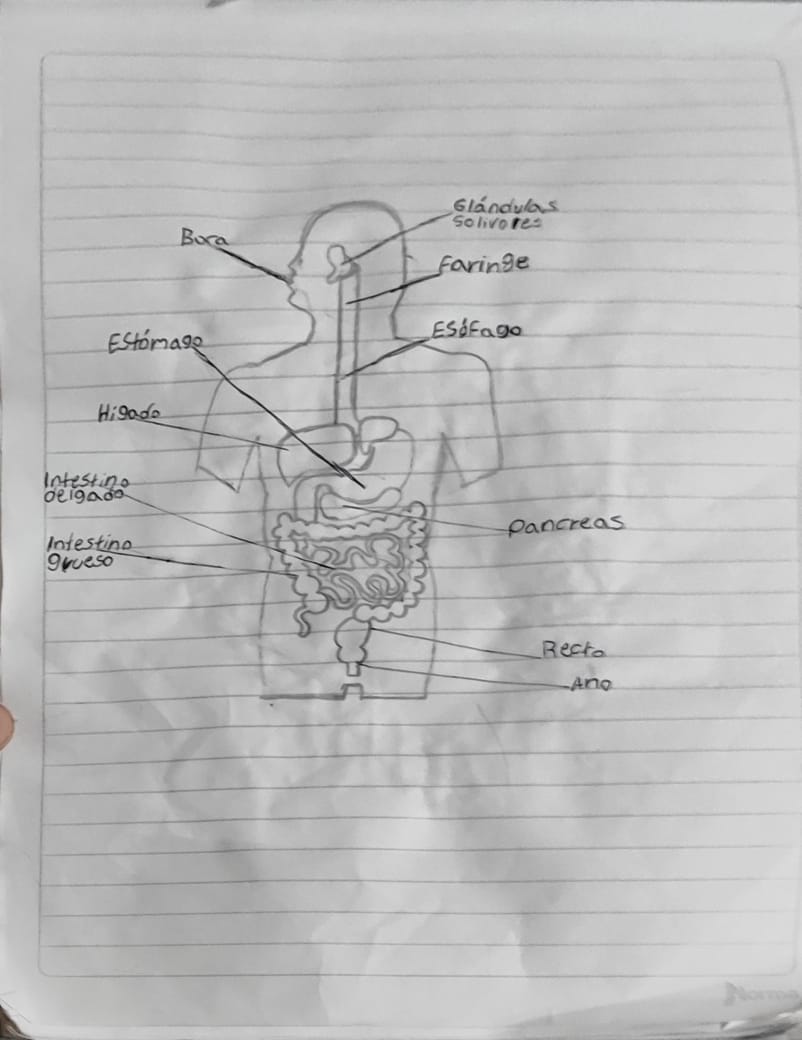 Glándulas
Solivores
Boca
Faringe
Esófago
Estómago
Higado
Intestino
delgado
Pancreas
Intestino
grueso
Recto
Ano
Norma